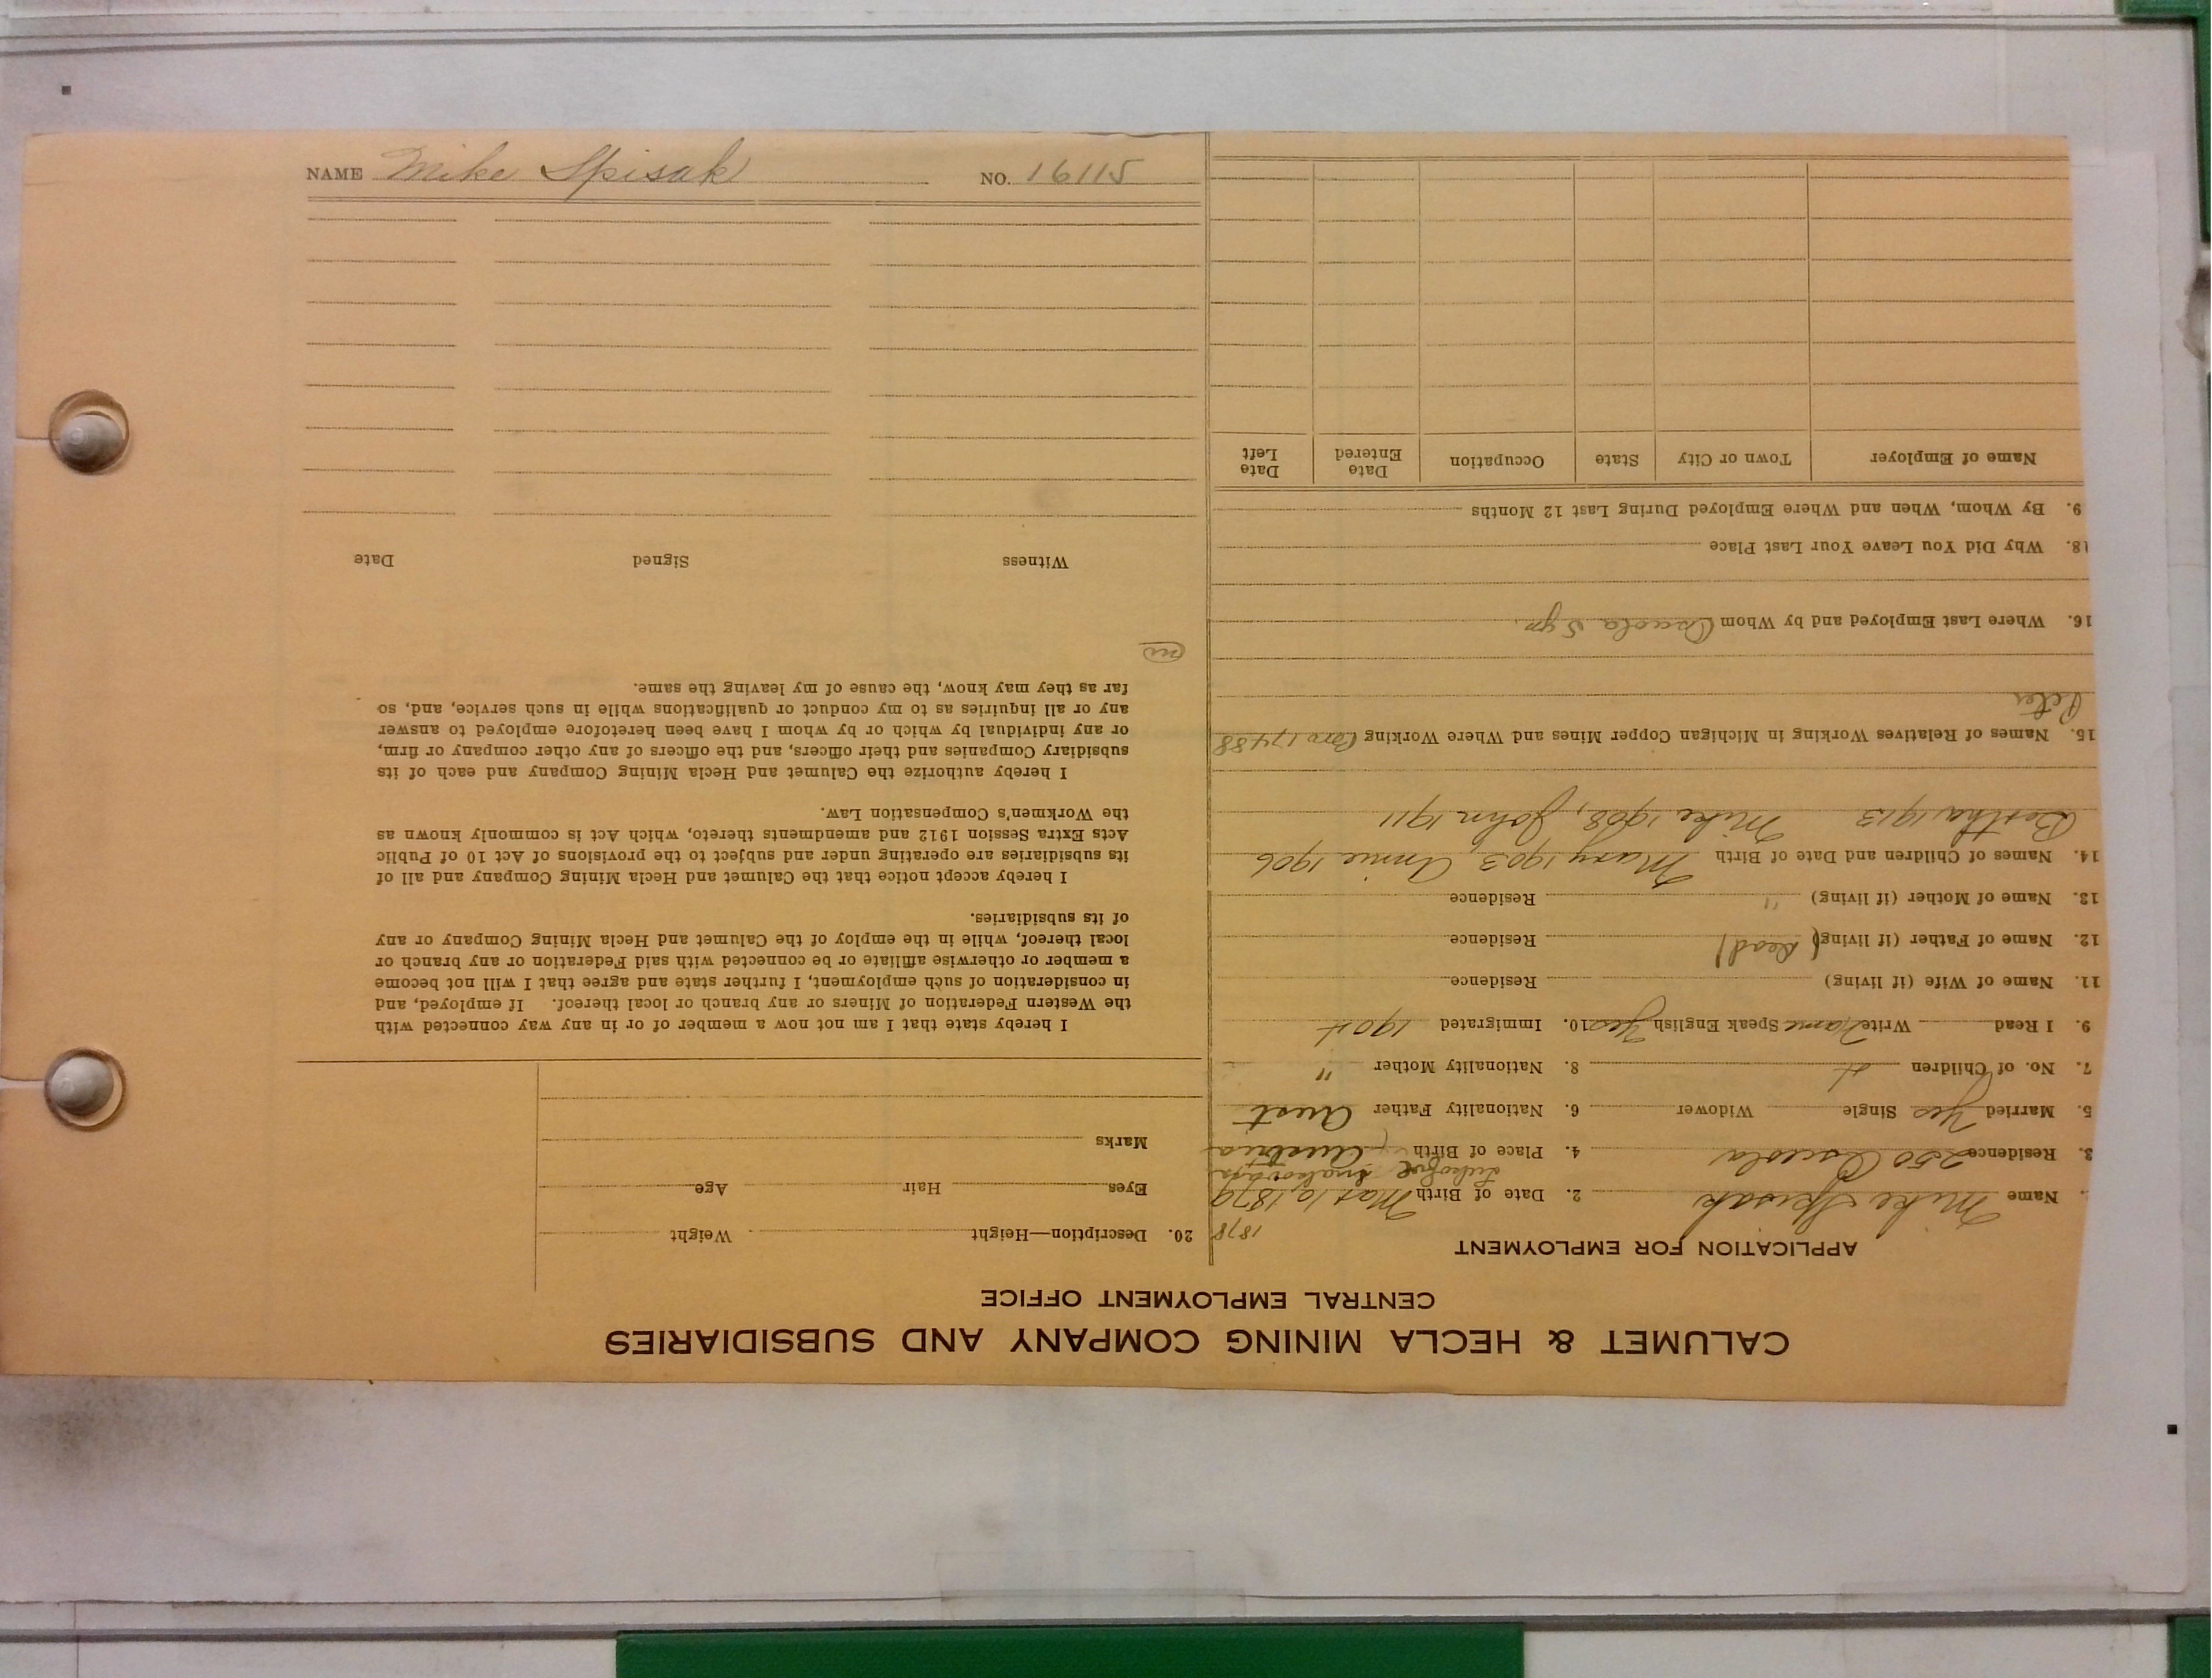 NAME Mike Spisak NO. 16115
CALUMET & HECLA MINING COMPANY AND SUBSIDIARIES
CENTRAL EMPLOYMENT OFFICE
APPLICATION FOR EMPLOYMENT
1878
Name Mike Spisak 2. Date of Birth Mar 10, 1879
3. Residence 250 Osceola 4. Place of Birth Austria
5. Married Yes Single Widower 6. Nationality Father Aust
7. No. of Children 4 8. Nationality Mother "
9. I Read Write Name Speak English Yes 10. Immigrated 1904
11. Name of Wife (if living) Residence
12. Name of Father (if living) (Dead) Residence
13. Name of Mother (if living) " Residence
14. Names of Children and Date of Birth Mary 1903, Annie 1906
Bertha 1913 Mike 1908, John 1911
15. Names of Relatives Working in Michigan Copper Mines and Where Working 17488
Peter
16. Where Last Employed and by Whom Osceola
18. Why Did You Leave Your Last Place
9. By Whom, When and Where Employed During Last 12 Months
Name of Employer Town or City State Occupation Date Entered Date Left
20. Description—Height Weight
Eyes Hair Age
Marks
I hereby state that I am not now a member of or in any way connected with
the Western Federation of Miners or any branch or local thereof. If employed, and
in consideration of such employment, I further state and agree that I will not become
a member or otherwise affiliate or be connected with said Federation or any branch or
local thereof, while in the employ of the Calumet and Hecla Mining Company or any
of its subsidiaries.
I hereby accept notice that the Calumet and Hecla Mining Company and all of
its subsidiaries are operating under and subject to the provisions of Act 10 of Public
Acts Extra Session 1912 and amendments thereto, which Act is commonly known as
the Workmen's Compensation Law.
I hereby authorize the Calumet and Hecla Mining Company and each of its
subsidiary Companies and their officers, and the officers of any other company or firm,
or any individual by which or by whom I have been heretofore employed to answer
any or all inquiries as to my conduct or qualifications while in such service, and, so
far as they may know, the cause of my leaving the same.
Witness Signed Date